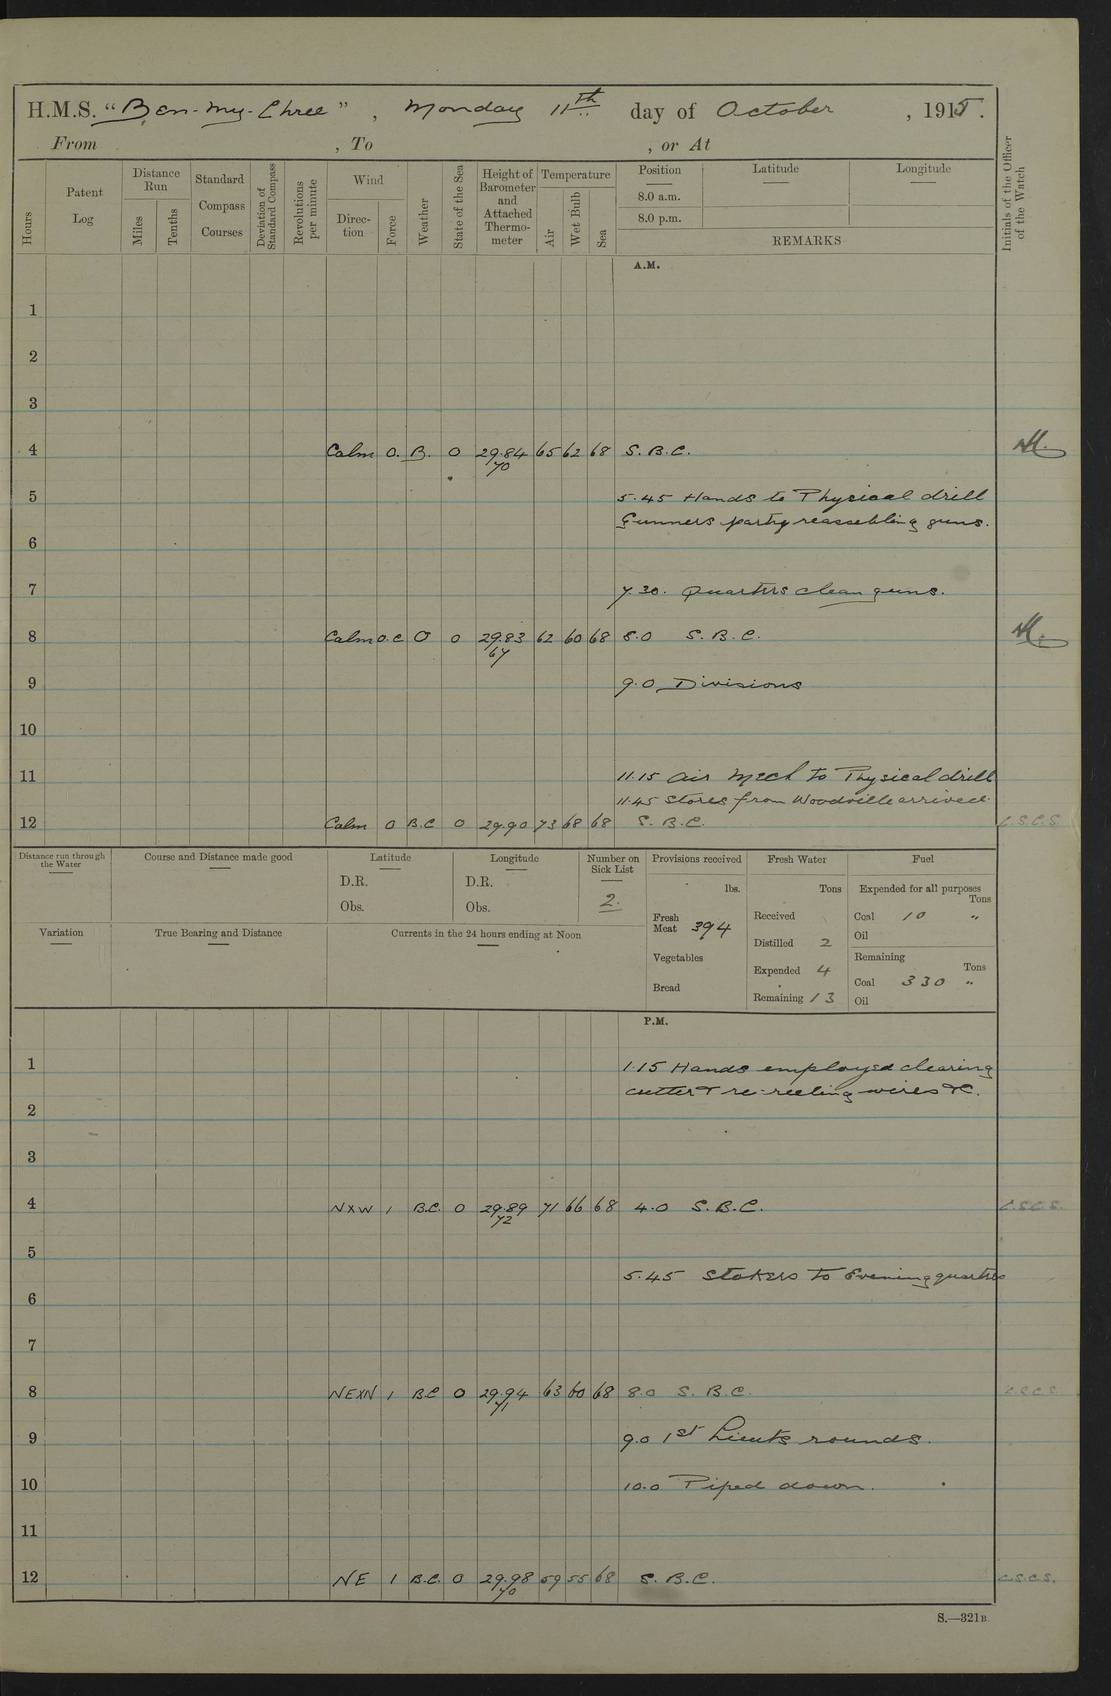 H.M.S. "Ben-my-Chree", Monday 11th day of October, 1915.
From , To , or At
Hours
Patent Log
Distance Run
Miles
Tenths
Standard Compass Courses
Deviation of Standard Compass
Revolutions per minute
Wind
Direction
Force
Weather
State of the Sea
Height of Barometer and Attached Thermometer
Temperature
Air
Wet Bulb
Sea
Position
8.0 a.m.
8.0 p.m.
Latitude
Longitude
REMARKS
Initials of the Officer of the Watch
A.M.
1
2
3
4 Calm 0. B. 0 29.84 65 62 68 S.B.C.
70
5 5.45 Hands to Physical drill
Gunners party reassebling guns.
6
7 7.30. Quarters clean guns.
8 Calm 0.C O 0 29.83 62 60 68 8.0 S.B.C.
67
9 9.0 Divisions
10
11 11.15 Air Mech to Physical drill
11.45 Stores from Woodville arrived.
12 Calm 0 B.C 0 29.90 73 68 68 S.B.C. C.S.C.S.
Distance run through the Water
Course and Distance made good
Latitude
D.R.
Obs.
Longitude
D.R.
Obs.
Number on Sick List
2.
Provisions received
lbs.
Fresh Meat 394
Vegetables
Bread
Fresh Water
Tons
Received
Distilled 2
Expended 4
Remaining 13
Fuel
Expended for all purposes
Tons
Coal 10 "
Oil
Remaining
Tons
Coal 330 "
Oil
Variation
True Bearing and Distance
Currents in the 24 hours ending at Noon
P.M.
1 1.15 Hands employed clearing
cutter & re-reeling wires &c.
2
3
4 NXW 1 B.C. 0 29.89 71 66 68 4.0 S.B.C. C.S.C.S.
72
5 5.45 Stokers to Evening quarters
6
7
8 NEXN 1 B.C 0 29.94 63 60 68 8.0 S.B.C. C.S.C.S.
71
9 9.0 1st Lieuts rounds.
10 10.0 Piped down.
11
12 NE 1 B.C. 0 29.98 59 55 68 S.B.C. C.S.C.S.
70
S.—321B